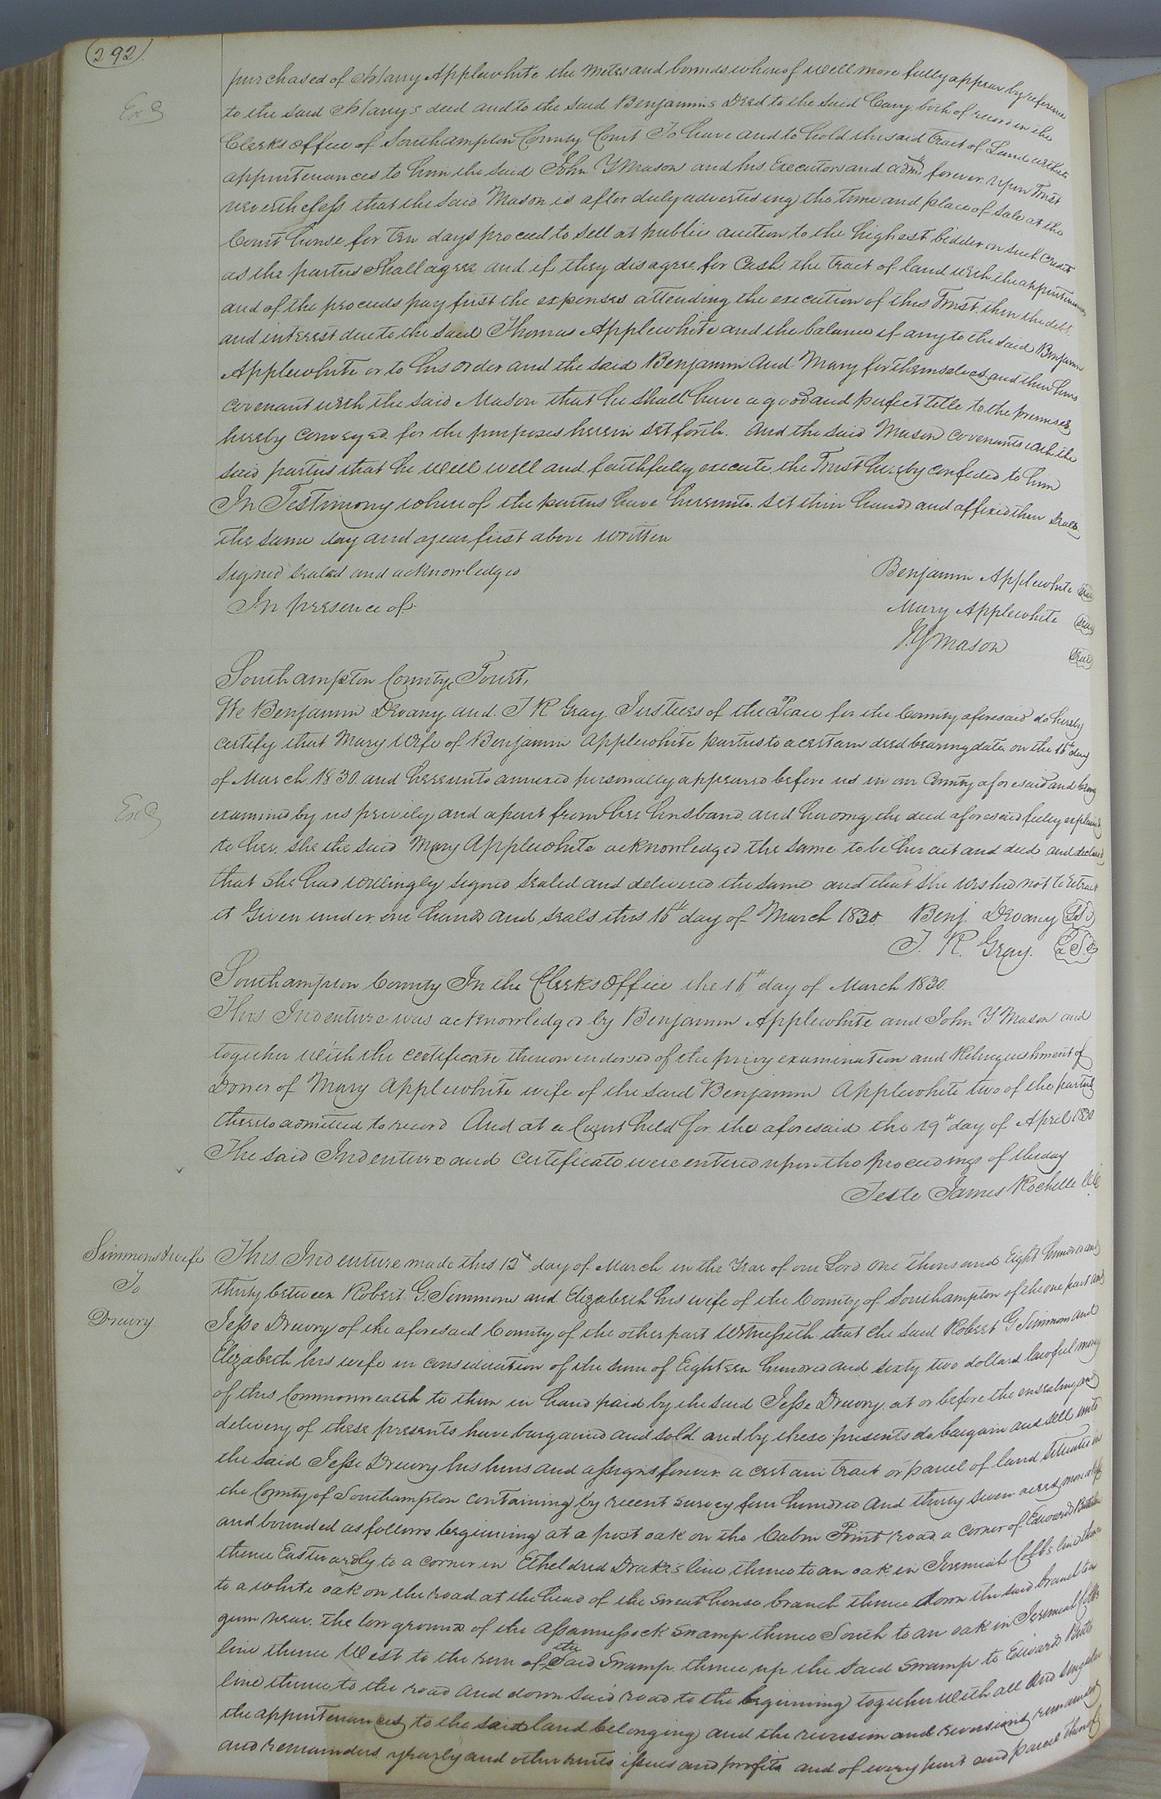 292
purchased of Harry Applewhite the metes and bounds whereof will more fully appear by reference
to the said Harry's deed and to the said Benjamins Deed to the said Harry both of record in the
Clerks office of Southampton County Court To have and to hold the said tract of Land with the
appurtenances to him the said John Y Mason and his Executors and adms forever upon Trust
nevertheless that the said Mason is after duly advertising the time and place of sale at the
Court house for ten days proceed to sell at public auction to the highest bidder on such credit
as the parties shall agree and if they disagree for cash the tract of land with the appurtenances
and of the proceeds pay first the expenses attending the execution of this Trust then the debt
and interest due to the said Thomas Applewhite and the balance if any to the said Benjamin
Applewhite or to his order and the said Benjamin and Mary for themselves and their heirs
covenant with the said Mason that he shall have a good and perfect title to the premises
hereby conveyed for the purposes herein set forth. And the said Mason covenants with the
said parties that he will well and faithfully execute the Trust hereby confided to him
In Testimony whereof the parties have hereunto set their hands and affixed their Seals
the same day and year first above written
Signed Sealed and acknowledged
In presence of
Benjamin Applewhite Seal
Mary Applewhite Seal
J Y Mason Seal
Southampton County Towit,
We Benjamin Devany and T R Gray Justices of the Peace for the County aforesaid do hereby
certify that Mary Wife of Benjamin Applewhite parties to a certain deed bearing date on the 16th day
of March 1830 and hereunto annexed personally appeared before us in our County aforesaid and being
examined by us privily and apart from her husband and having the deed aforesaid fully explained
to her, she the said Mary Applewhite acknowledged the same to be her act and deed and declared
that she had willingly signed sealed and delivered the same and that she wished not to retract
it Given under our hands and seals this 16th day of March 1830. Benj. Devany L.S.
T. R. Gray. L.S.
Southampton County In the Clerks Office the 16th day of March 1830.
This Indenture was acknowledged by Benjamin Applewhite and John Y Mason and
together with the certificate thereon endorsed of the privy examination and Relinquishment of
Dower of Mary Applewhite wife of the said Benjamin Applewhite two of the parties
thereto admitted to record And at a Court held for the aforesaid the 19th day of April 1830
The said Indenture and certificate were entered upon the proceedings of the day
Teste James Rochelle
Simmons & wife
To
Drewry
This Indenture made this 12th day of March in the Year of our Lord one thousand Eight hundred and
thirty between Robert G. Simmons and Elizabeth his wife of the County of Southampton of the one part and
Jesse Drewry of the aforesaid County of the other part Witnesseth that the said Robert G Simmons and
Elizabeth his wife in consideration of the sum of Eighteen hundred and sixty two dollars lawful money
of this Commonwealth to them in hand paid by the said Jesse Drewry at or before the ensealing and
delivery of these presents have bargained and sold and by these presents do bargain and sell unto
the said Jesse Drewry his heirs and assigns forever a certain tract or parcel of land situated in
the County of Southampton containing by recent survey four hundred and thirty seven acres more or less
and bounded as follows beginning at a post oak on the Cabin Point road a corner of Edward
thence Eastwardly to a corner in Etheldred Drakes line thence to an oak in Jeremiah Cobbs line thence
to a white oak on the road at the head of the Sweathouse branch thence down the said branch to a
gum near the low grounds of the assamussock swamp thence South to an oak in Jeremiah Cobbs
line thence West to the run of the Said Swamp thence up the said swamp to Edward Butts
line thence to the road and down said road to the beginning together with all and singular
the appurtenances to the said land belonging and the reversion and reversions remainder
and remainders yearly and other rents issues and profits and of every part and parcel thereof